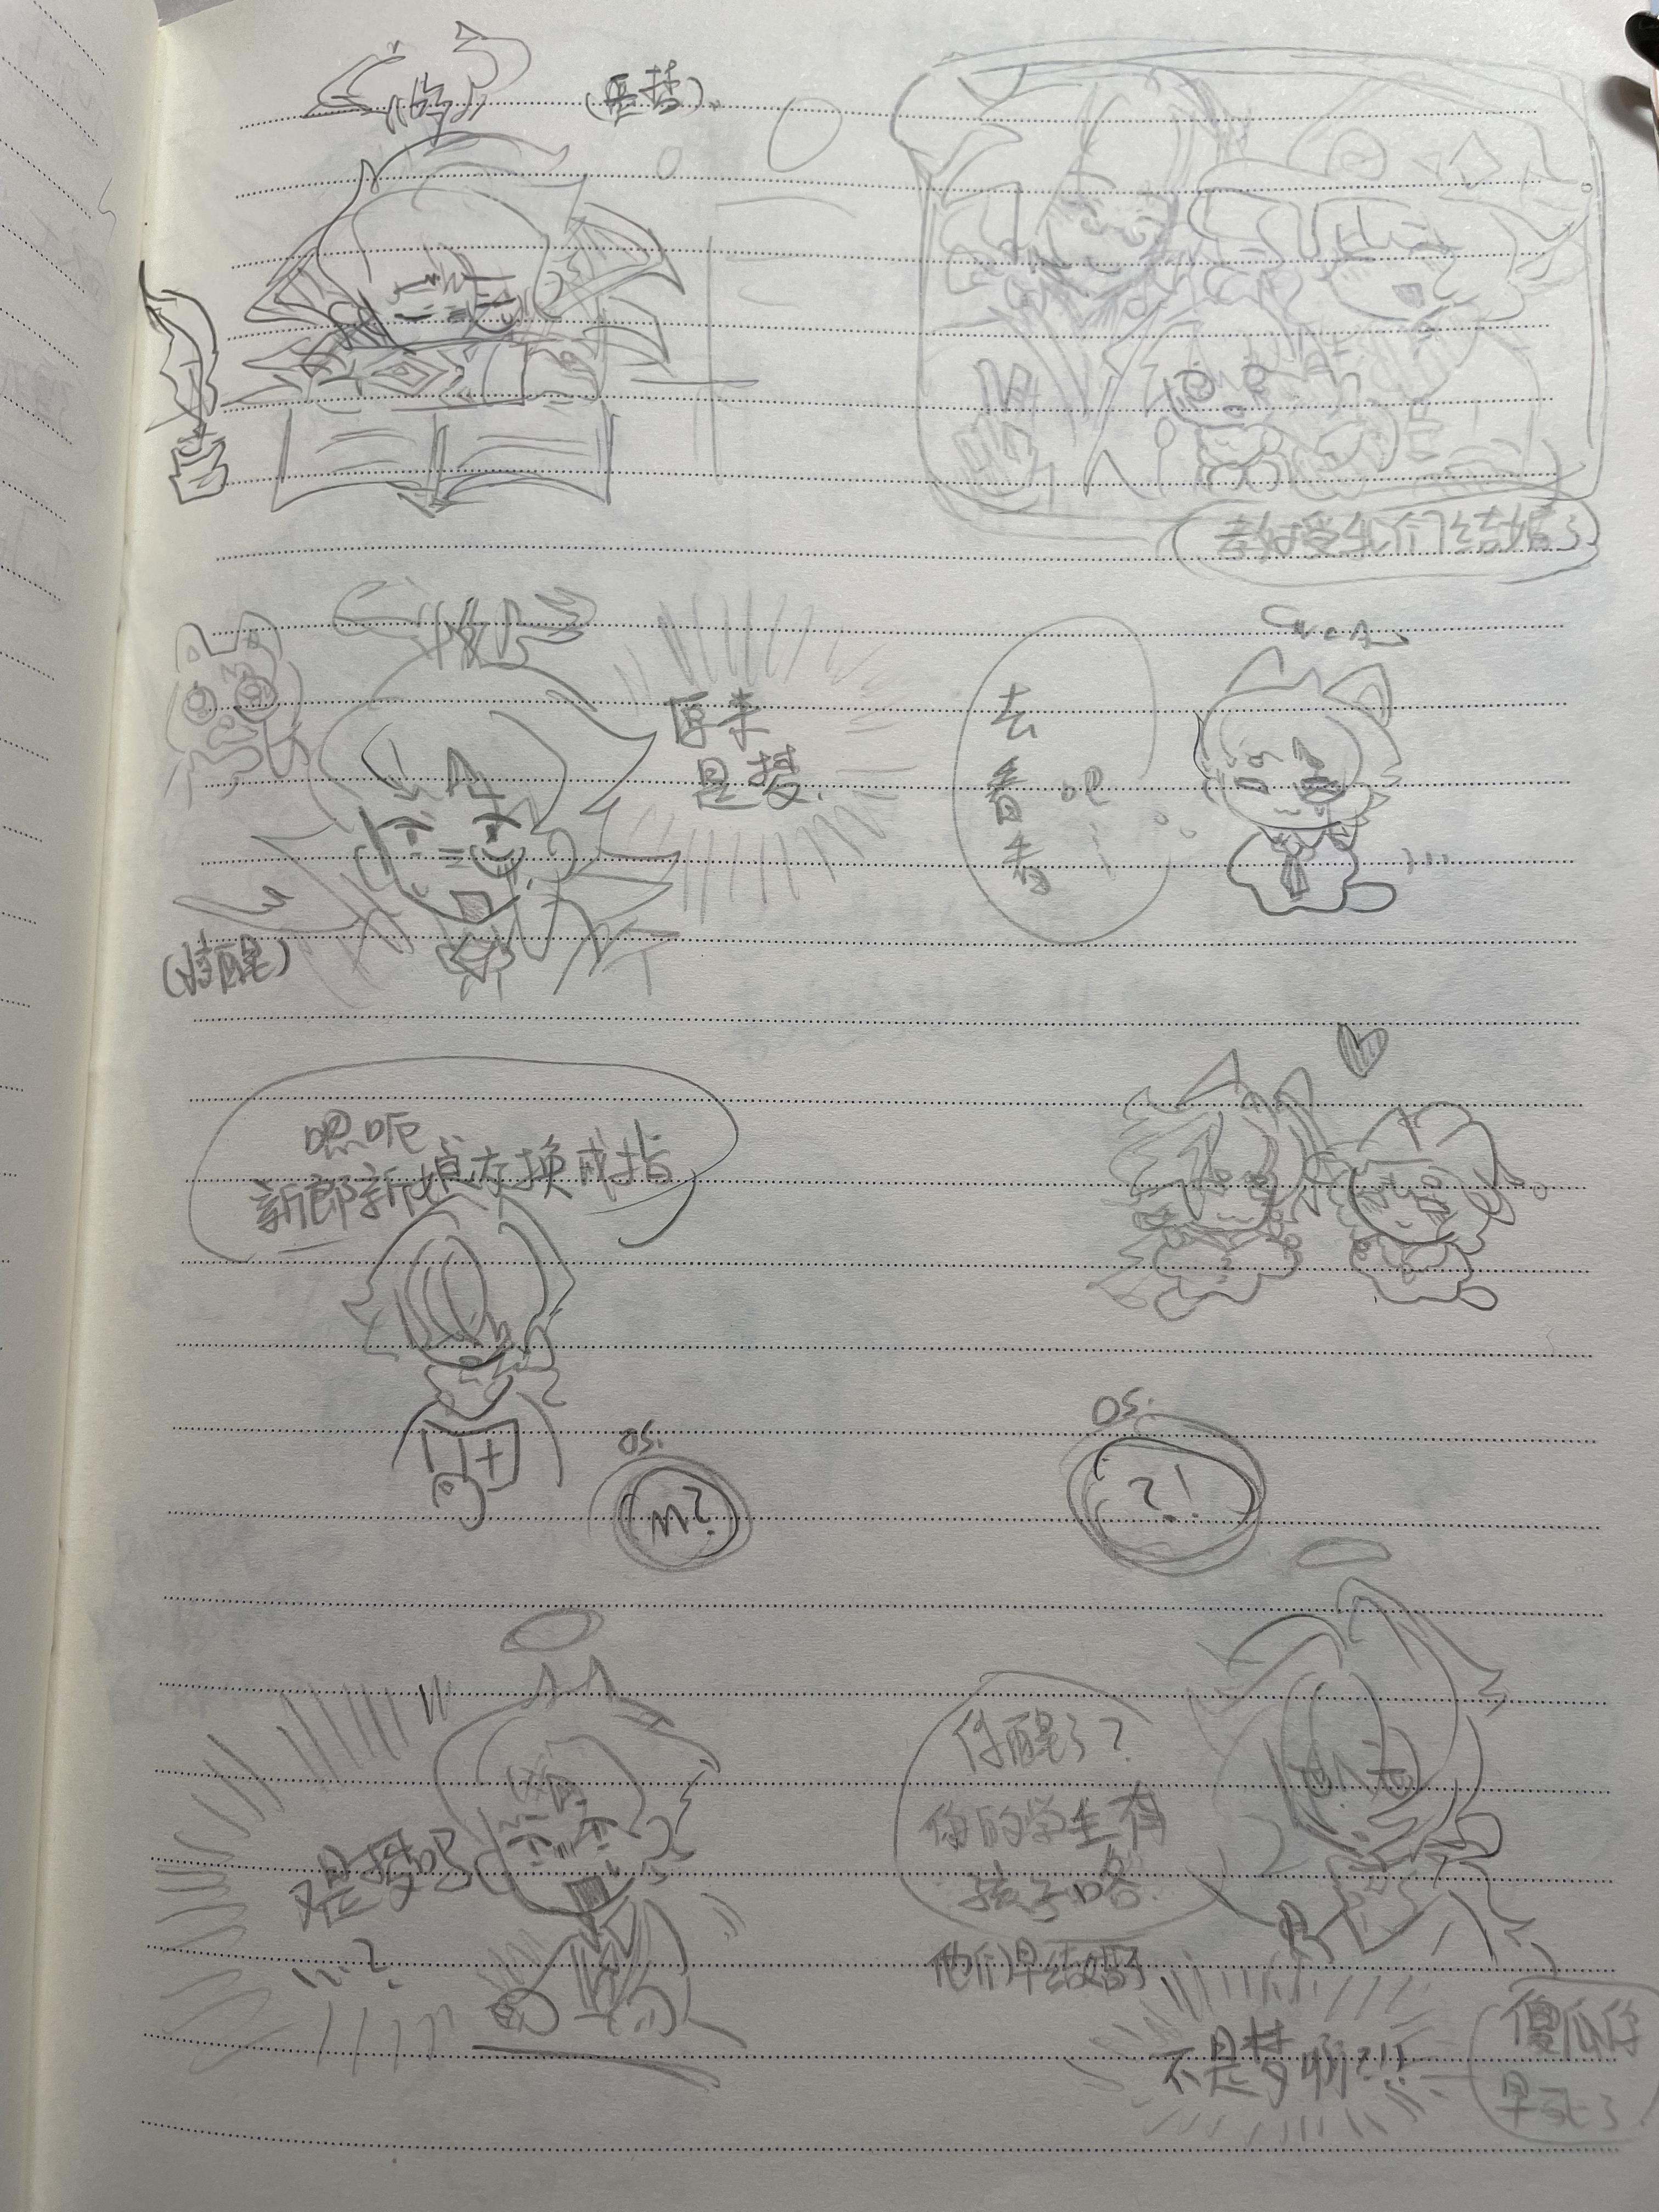 老师受我们结婚了
原来
是梦.
去
看 吧
看 !
(惊醒)
嗯呃
新郎新娘交换戒指
OS.
?
OS.
?!
是梦吧
…?
你醒了?
你的学生有
孩子咯.
他们早结婚了
不是梦啊?!!
傻瓜你
早死了